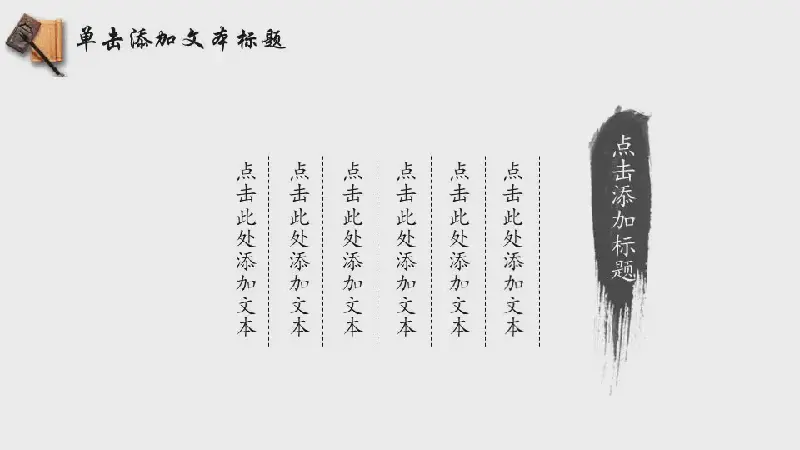 单击添加文本标题
点击添加标题
点击此处添加文本
点击此处添加文本
点击此处添加文本
点击此处添加文本
点击此处添加文本
点击此处添加文本